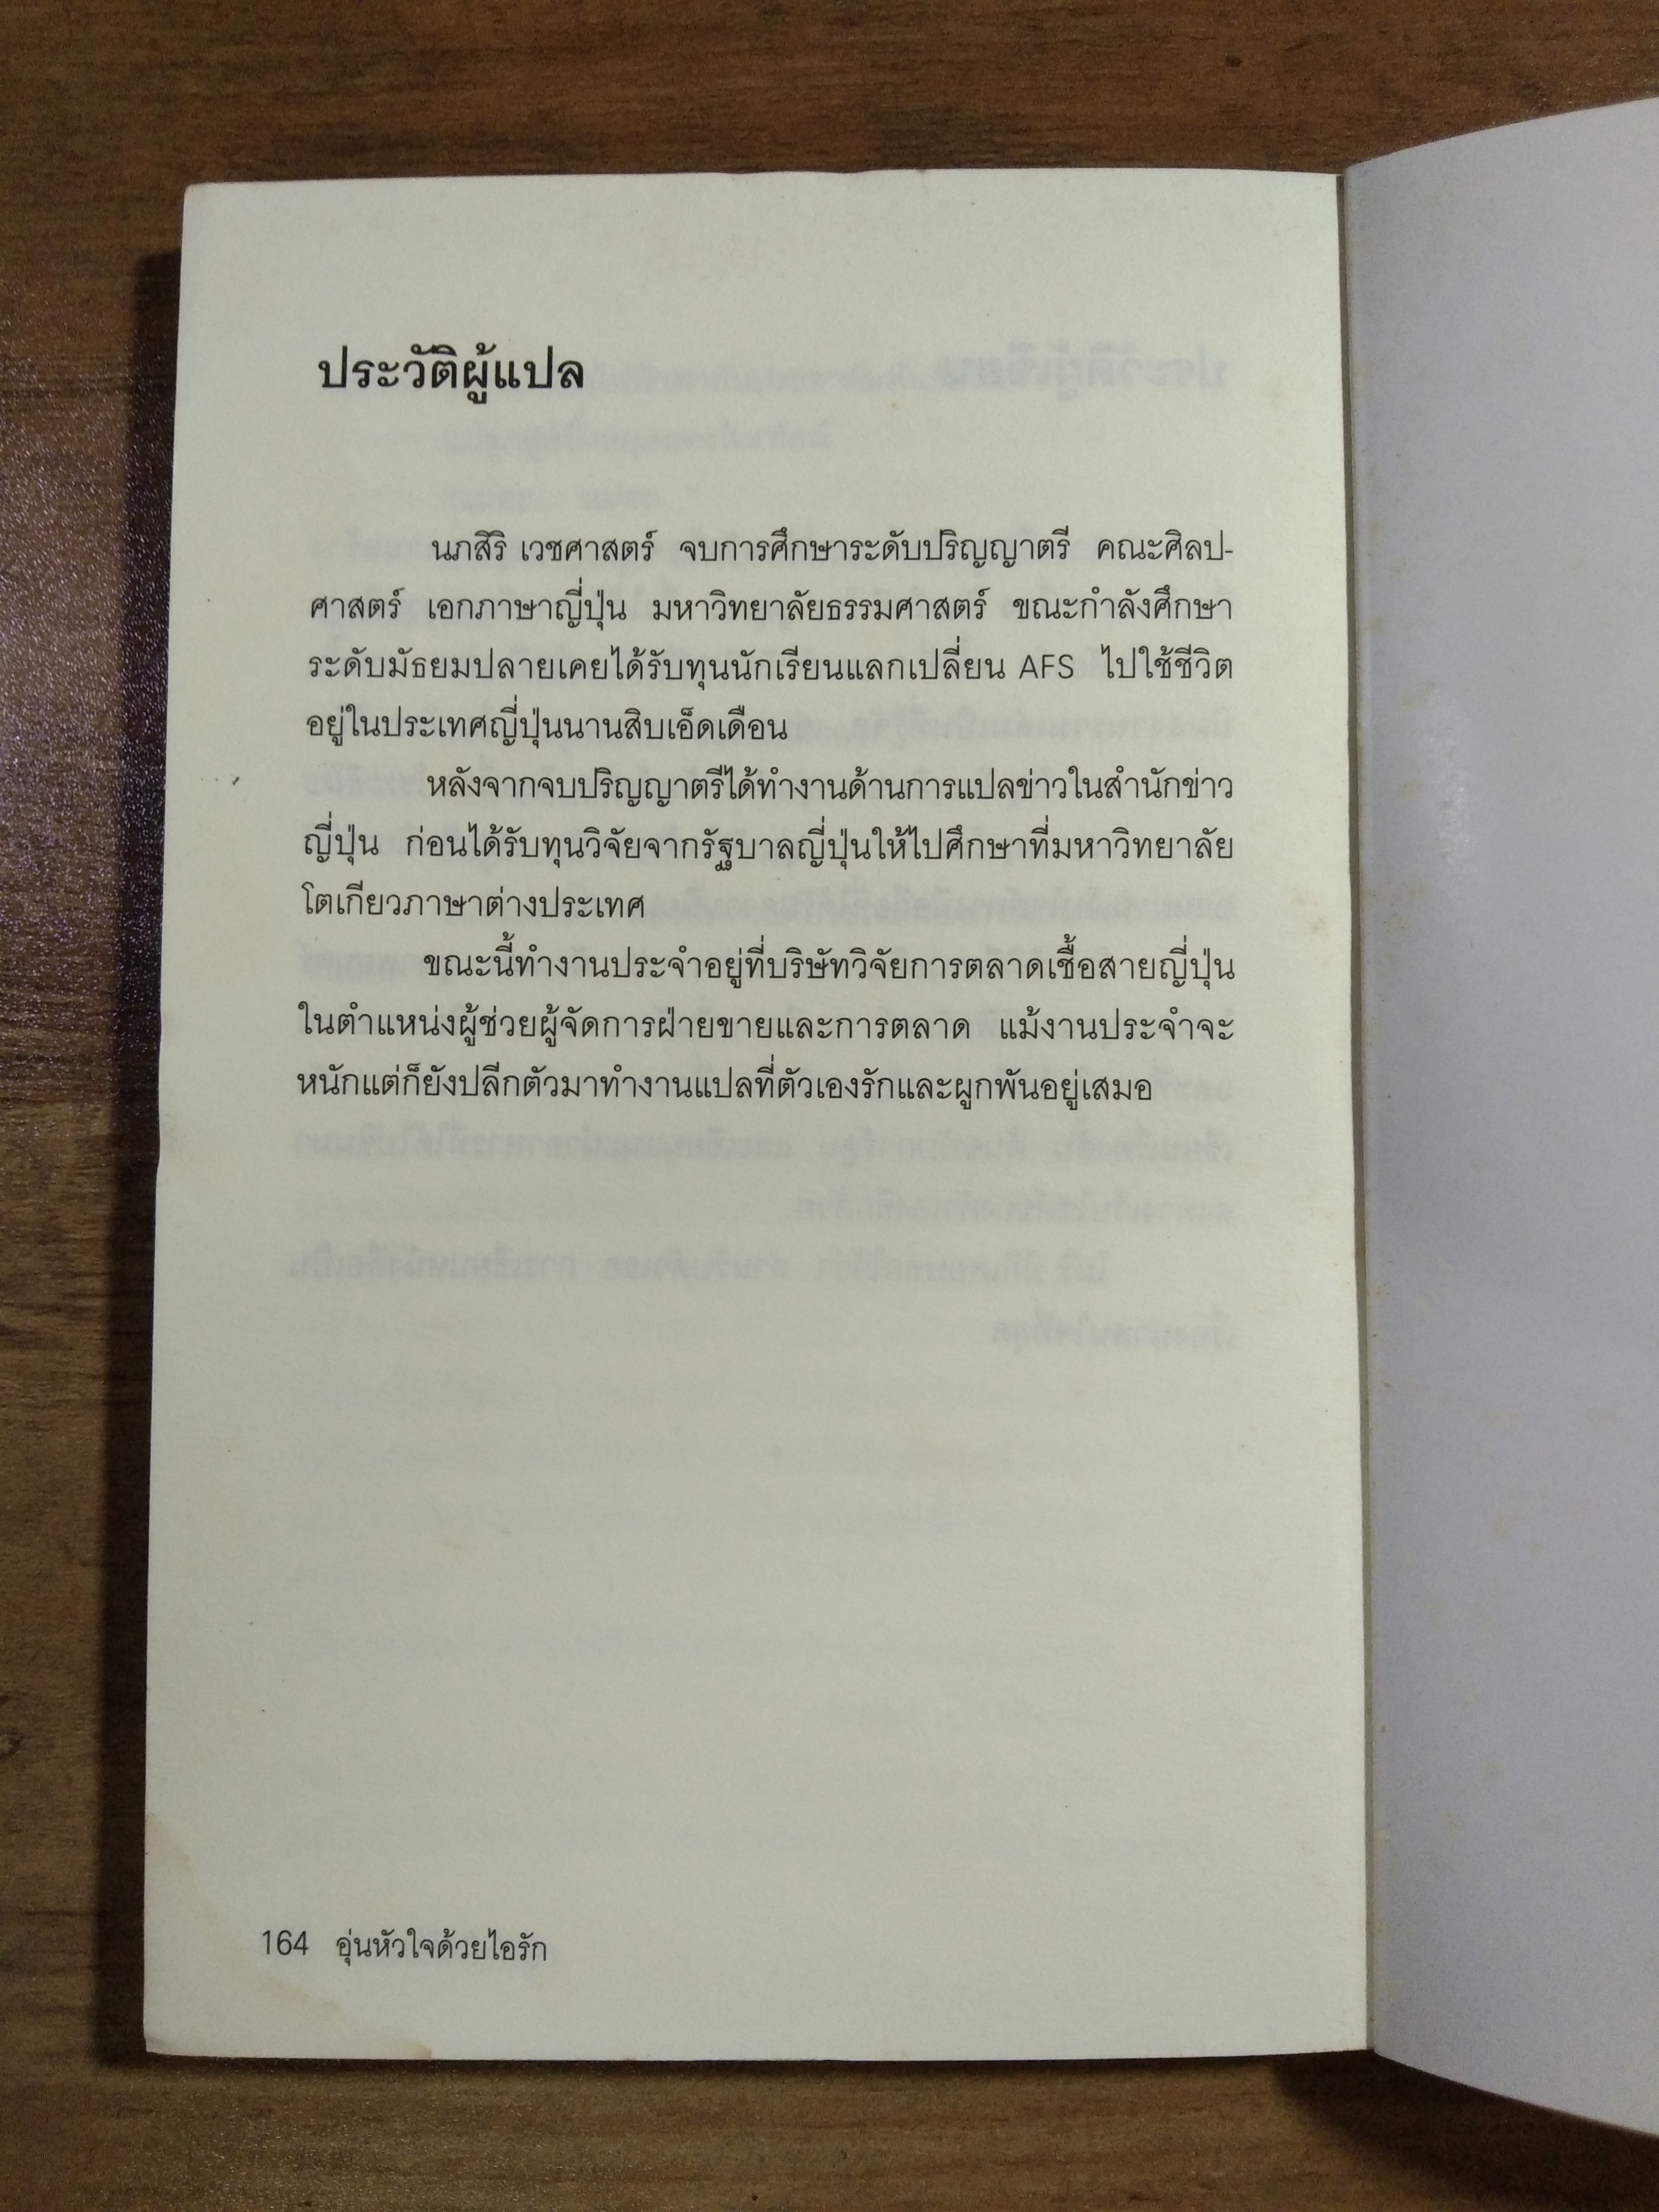 ประวัติผู้แปล
นภสิริ เวชศาสตร์ จบการศึกษาระดับปริญญาตรี คณะศิลป-
ศาสตร์ เอกภาษาญี่ปุ่น มหาวิทยาลัยธรรมศาสตร์ ขณะกำลังศึกษา
ระดับมัธยมปลายเคยได้รับทุนนักเรียนแลกเปลี่ยน AFS ไปใช้ชีวิต
อยู่ในประเทศญี่ปุ่นนานสิบเอ็ดเดือน
หลังจากจบปริญญาตรีได้ทำงานด้านการแปลข่าวในสำนักข่าว
ญี่ปุ่น ก่อนได้รับทุนวิจัยจากรัฐบาลญี่ปุ่นให้ไปศึกษาที่มหาวิทยาลัย
โตเกียวภาษาต่างประเทศ
ขณะนี้ทำงานประจำอยู่ที่บริษัทวิจัยการตลาดเชื้อสายญี่ปุ่น
ในตำแหน่งผู้ช่วยผู้จัดการฝ่ายขายและการตลาด แม้งานประจำจะ
หนักแต่ก็ยังปลีกตัวมาทำงานแปลที่ตัวเองรักและผูกพันอยู่เสมอ
164 อุ่นหัวใจด้วยไอรัก